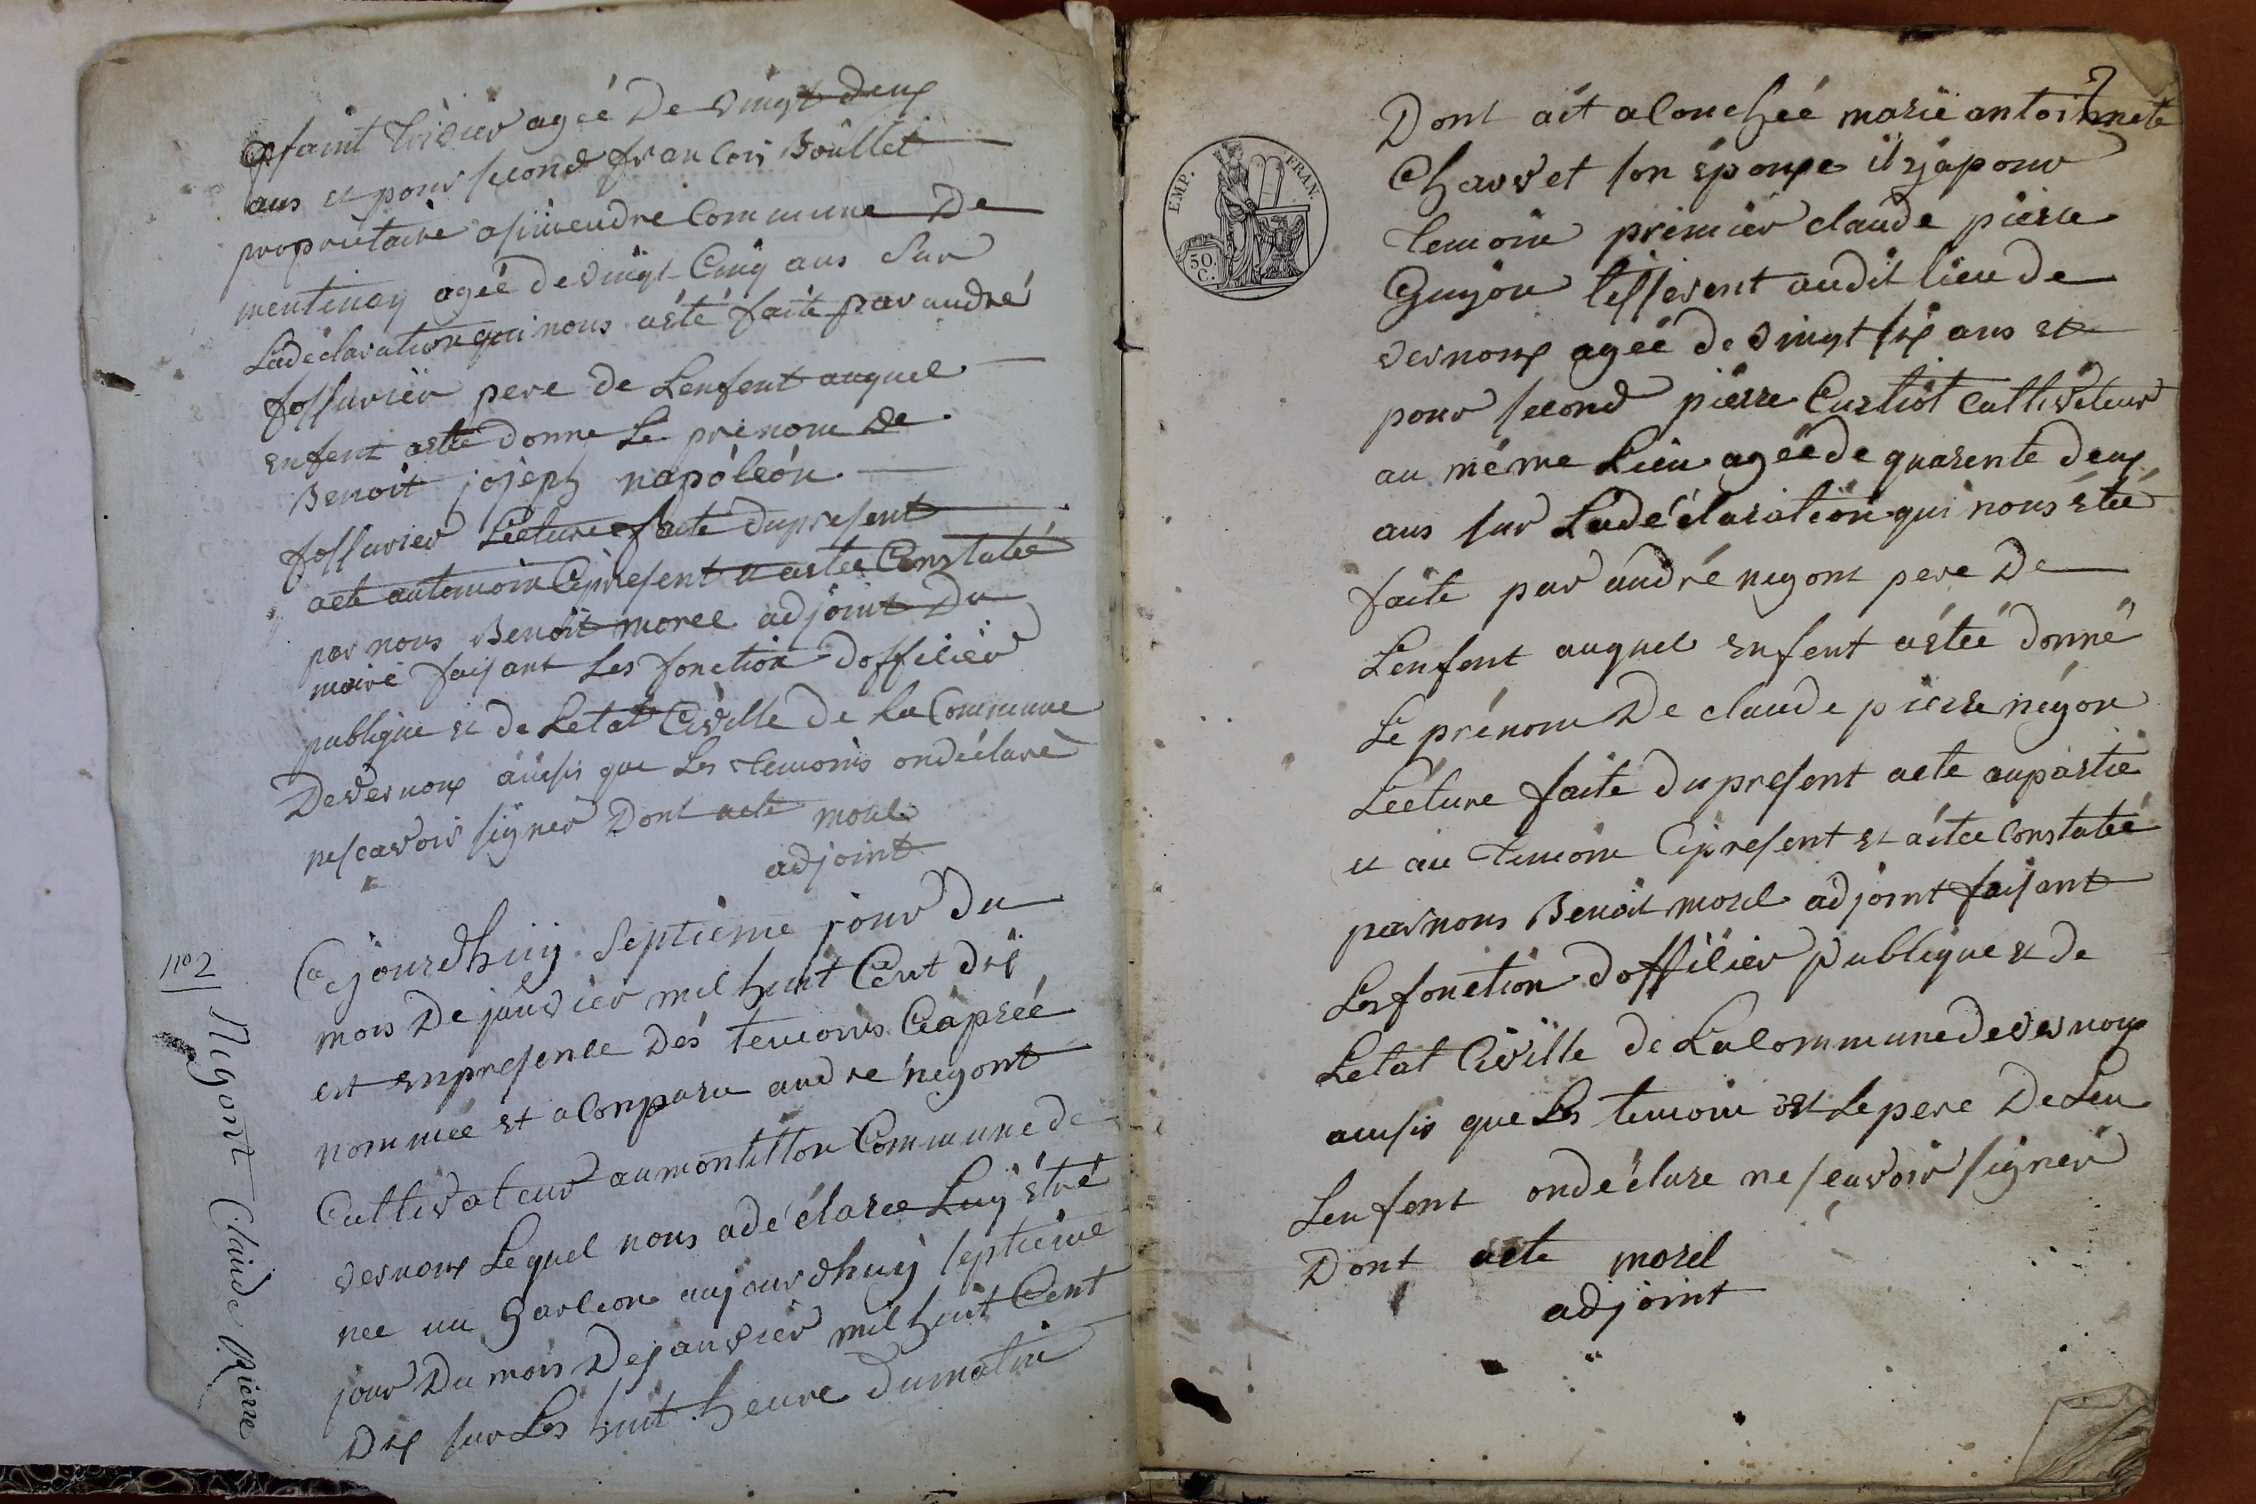 agée De vingt deux
ans et pour second francois Boüllet
propriétaire a Commune De
mentinay agée de vingt Cinq ans Sur
La déclaration qui nous a été faite par andré
fossurier pere de Lenfent auquel
enfent astée donne Le prenom De
Benoit josepz napóléón
fossurier Lecture faite du present
acte au temoin Cipresent et astée Constatée
par nous Benoit morel adjoint Du
maire faisant Les fonction dofficier
publique et de Letat Civille de La Commune
De vernoux ainsis que Les temoins on déclaré
ne scavoir signer Dont acte morel
adjoint
no 2
Nigont Claude Pierre
Ce jourdhuy Septieme jour Du
mois De janvier mil huit Cent dix
est en presence Des temoins Ciaprée
nommée et a Comparu andré negont
Cultivateur au montillon Commune de
vernoux Lequel nous a déclaree Luy être
nee un Garleon aujourdhuy septieme
jour Du mois De janvier mil huit Cent
Dix sur Les huit heure du matin
2
Dont ait a Couchéé marie antoinnete
Charvet son épouse il zi a pour
temoin premier claude pierre
Guyon tisserent audit lieu de
vernoux agéé de vingt six ans et
pour second pierre Curtiot Cultiveteur
au même Lieu agéé de quarente deux
ans sur La déclaration qui nous étéé
faite par andré negont pere De
Lenfent auquel enfent astéé donné
Le prénom De claude pierre négon
Lecture faite du present acte au partie
et au temoin Cipresent et astée Constatée
par nous Benoit morel adjoint faisant
Les fonction dofficier publique et de
Letat Civille de La Commune de vernoux
ainsis que Les temoin et Le pere De Leu
Lenfent on déclare ne scavoir signer
Dont acte morel
adjoint
EMP. FRAN.
50
C.